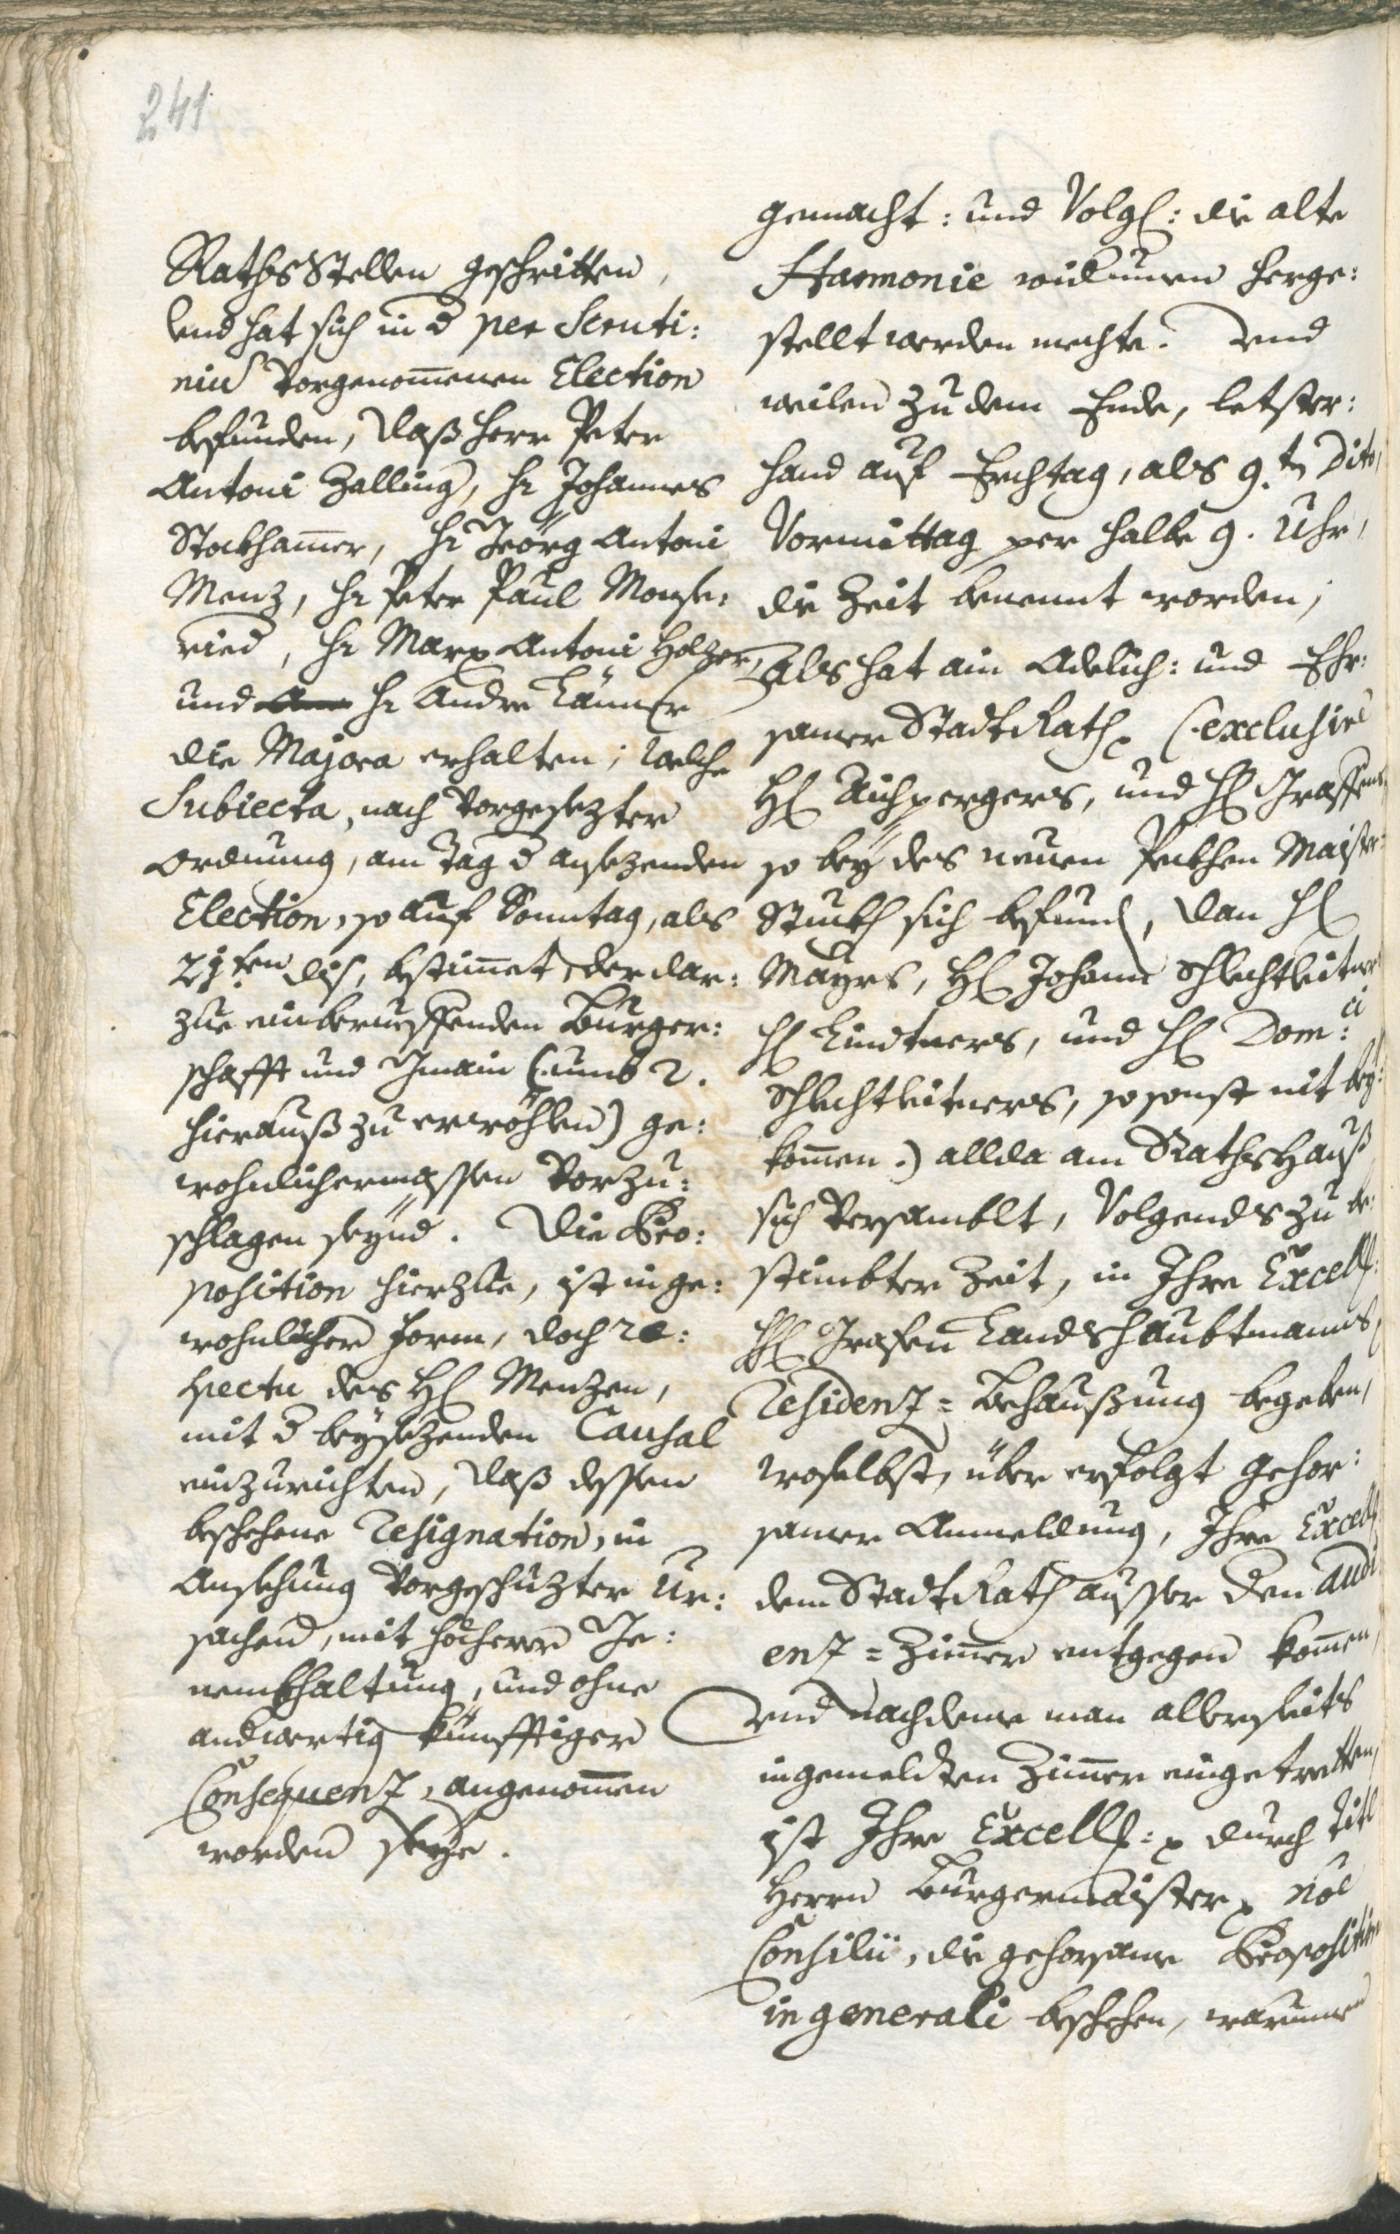 241
Raths Stellen geschritten,
vnd hat sich in d per Scruti:
niu vorgenommenen Election
befunden, daß Herr Peter
Antoni Zalling, Hr Johannes
Stockhamer, Hr Jeörg Antoni
Menz, Hr Peter Paul
Hr Marx Antoni Holzer,
und Hr Andre
die Majora erhalten; welche
Subiecta, nach vorgesezter
Ordnung, am Tag d ansezenden
Election, so auf Sonntag, als
21ten dis, bestimmet, der dar:
zue einberueffenden Burger:
schafft und Gmain (: umb 2.
hierauß zu erwöhlen) ge:
wohnlichermassen vorzu:
schlagen seynd. Die Pro:
position hierzue, ist in ge:
wohnlicher Form, doch re:
spectu des H Menzen,
mit d beysezenden Causal
einzurichten, daß dessen
beschehene Resignation, in
Ansehung vorgeschuzter Ur:
sachen, mit höcherer Ge:
nembhaltung, und ohne
andwertig künfftiger
Consequenz, angenommen
worden seye.
gemacht: und Volgl: die alte
Harmonie widerumen herge:
stellt werden mechte. Vnd
weilen zu dem Ende, letster:
hand auf Erchtag, als 9.tn Dito,
Vormittag per halbe 9. Uhr,
die Zeit benennt worden,
Als hat ain Adelich: und Ehr:
samer Stadt Rath (: exclusive
H Aichpergers, und H
so bey des neuen Pekhen Maister:
Stuckh sich befund, dan H
Mayrs, H Johann Schlechtleitner
H Lindtners, und H Dom:ci
Schlechtleitners, so sonst nit bey:
kommen.) allda am Rathshauß
sich versamblt, Volgends zu be:
stimbter Zeit, in Ihre Excell:
H Grafen Landshaubtmanns,
Residenz = Behaußung begeben,
woselbst, über erfolgt gehor:
samer Anmeldung, Ihre Excell
dem Stadt Rath ausser den Audi
enz = Zimer entgegen komen,
Vnd nachdeme man allerseits
in gemeldten Zimer eingetretten,
ist Ihre Excell: durch Titl
Herrn Burgermaister noe
Consilii, die gehorsame Proposition
in generali beschehen, warumen